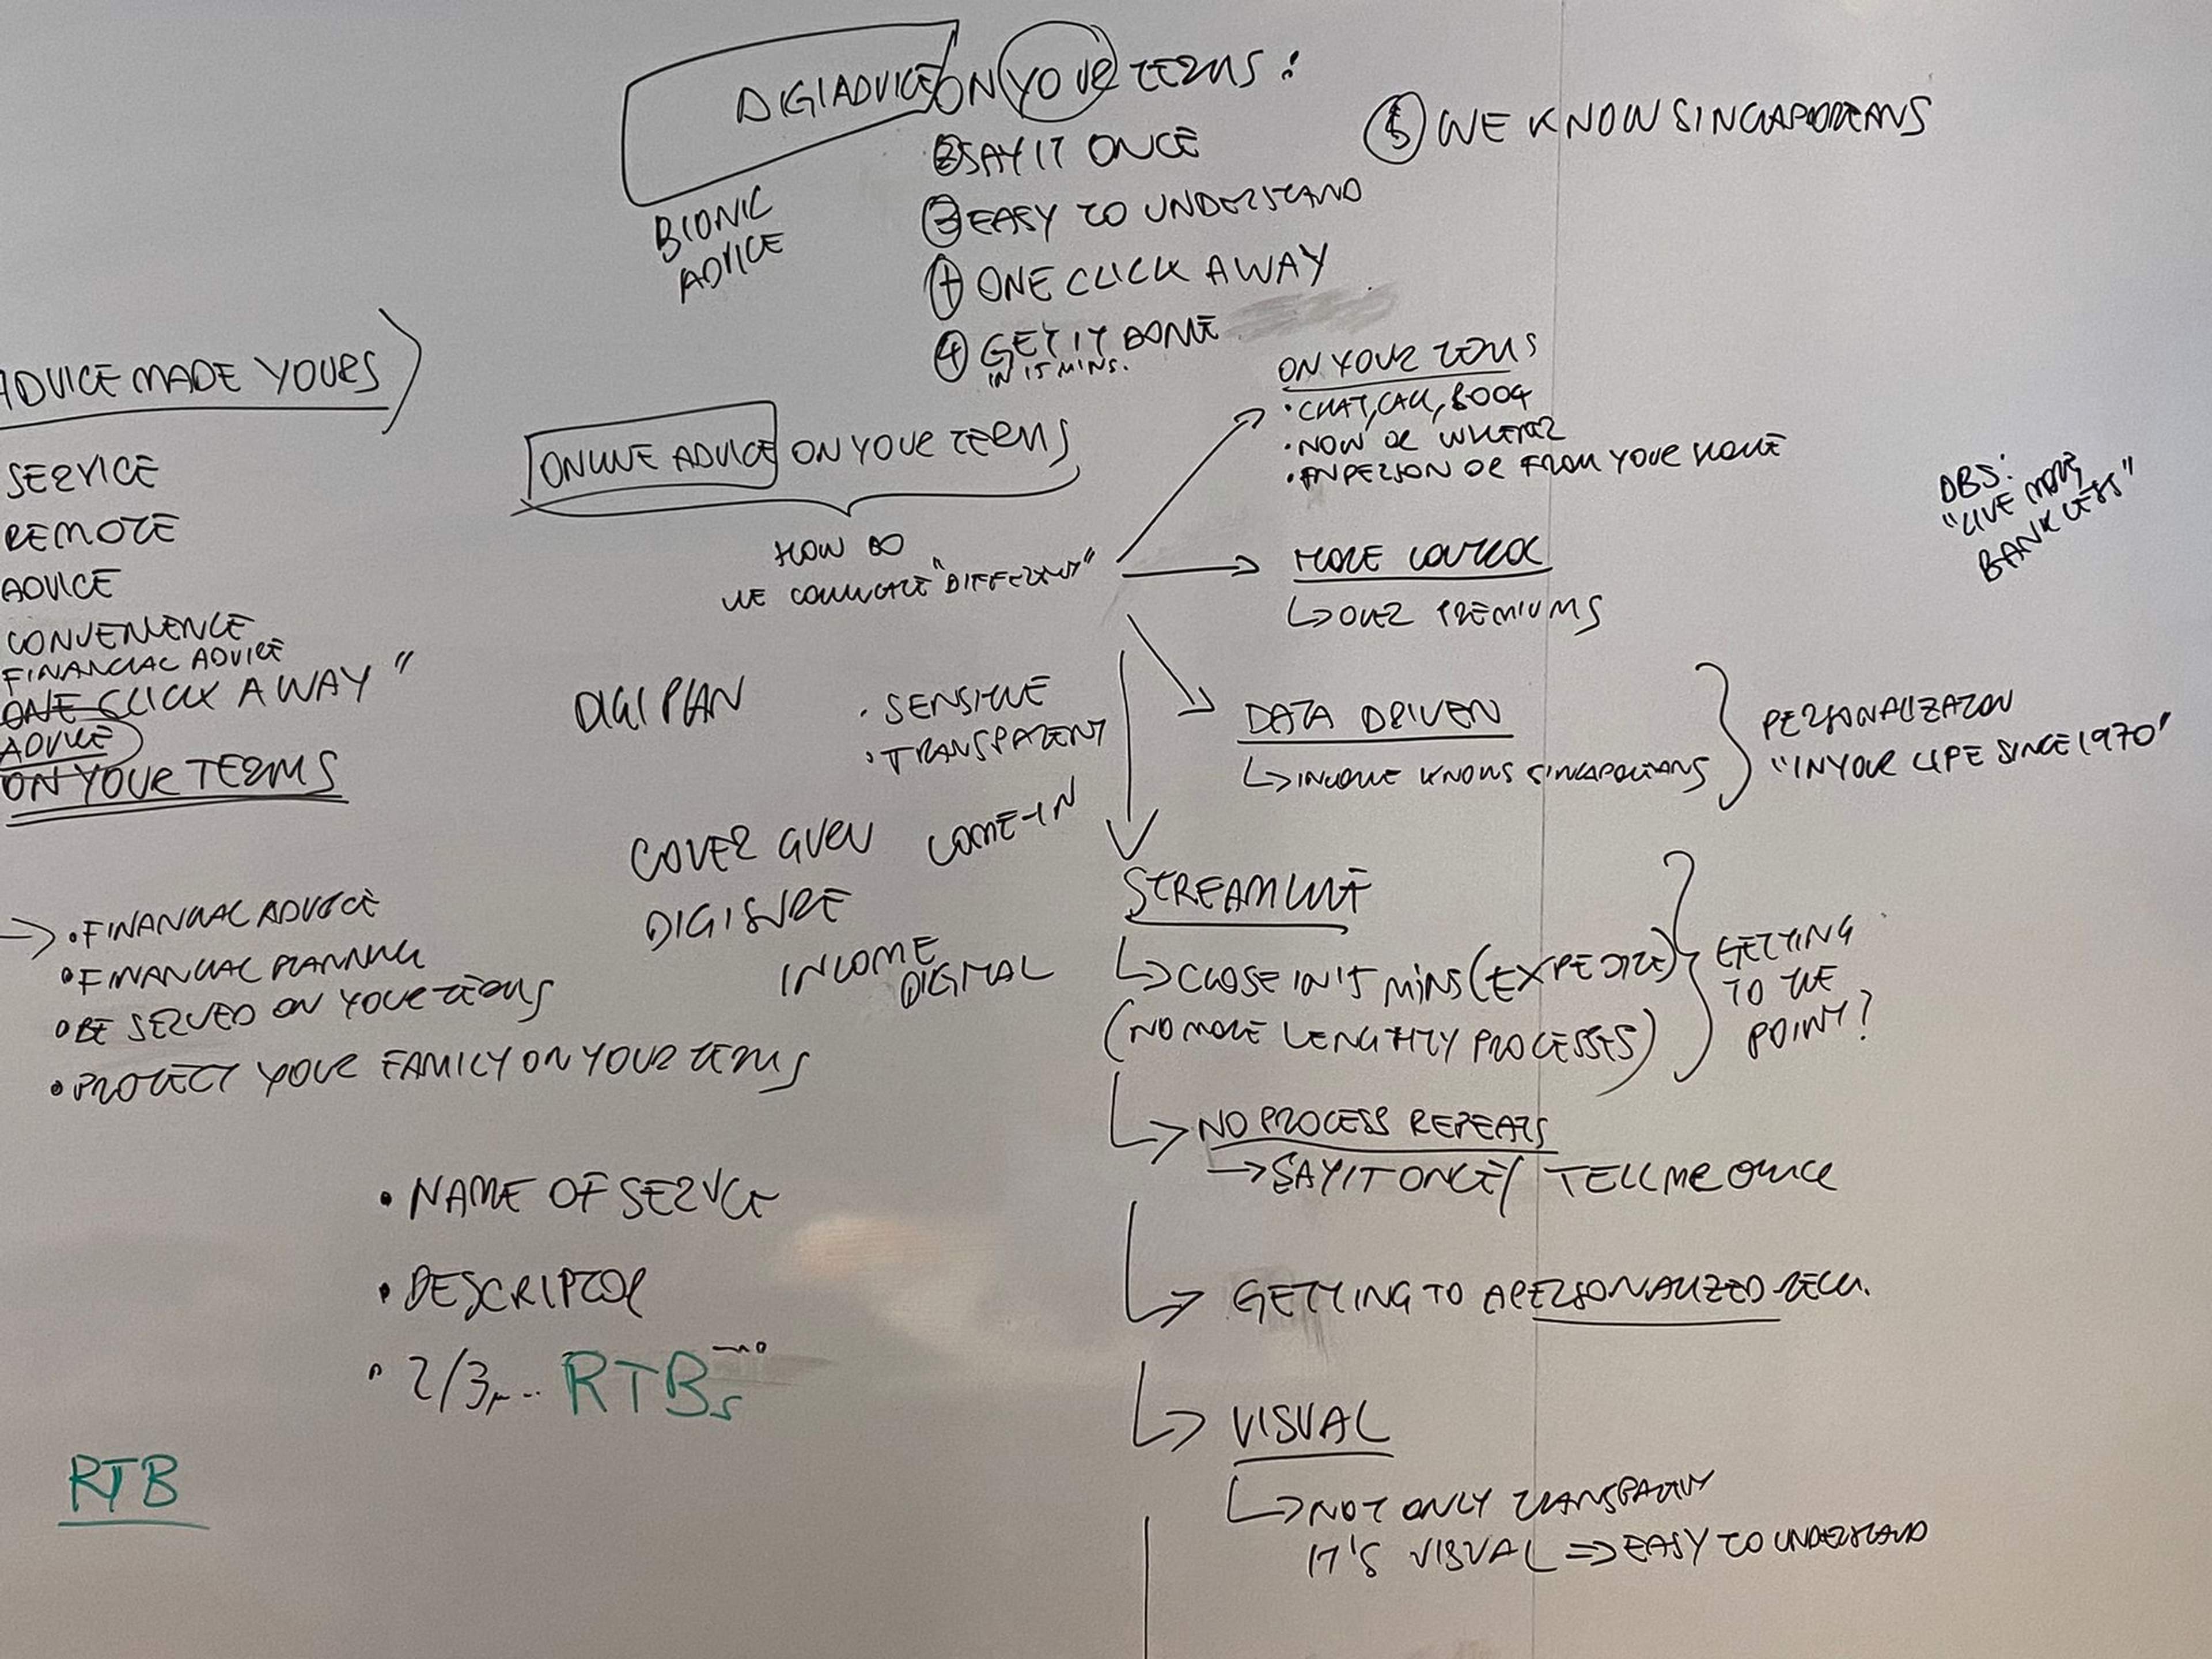 DIGIADVICE ON YOUR TERMS:
② SAY IT ONCE
③ EASY TO UNDERSTAND
① ONE CLICK AWAY
④ GET IT DONE
IN 15 MINS.
⑤ WE KNOW SINGAPOREANS
BIONIC
ADVICE
ADVICE MADE YOURS
SERVICE
REMOTE
ADVICE
CONVENIENCE
FINANCIAL ADVICE
ONE CLICK AWAY"
ADVICE
ON YOUR TERMS
→ • FINANCIAL ADVICE
• FINANCIAL PLANNING
• BE SERVED ON YOUR TERMS
• PROTECT YOUR FAMILY ON YOUR TERMS
ONLINE ADVICE ON YOUR TERMS
HOW DO
WE COMMUNICATE "DIFFERENT"
DIGIPLAN
• SENSITIVE
• TRANSPARENT
COVER GURU
COME-IN
DIGISURE
INCOME
DIGITAL
• NAME OF SERVICE
• DESCRIPTOR
• 2/3, ... RTBs
RTB
ON YOUR TERMS
• CHAT, CALL, BOOK
• NOW OR WHENEVER
• INPERSON OR FROM YOUR HOME
MORE CONTROL
↳ OVER PREMIUMS
DATA DRIVEN
↳ INCOME KNOWS SINGAPOREANS
PERSONALIZATION
"IN YOUR LIFE SINCE 1970"
DBS:
"LIVE MORE,
BANK LESS"
STREAMLINE
↳ CLOSE IN 15 MINS (EXPEDITE)
(NO MORE LENGTHY PROCESSES)
GETTING
TO THE
POINT?
↳ NO PROCESS REPEATS
→ SAY IT ONCE / TELL ME ONCE
↳ GETTING TO A PERSONALIZED RECM.
↳ VISUAL
↳ NOT ONLY TRANSPARENT
IT'S VISUAL ⇒ EASY TO UNDERSTAND